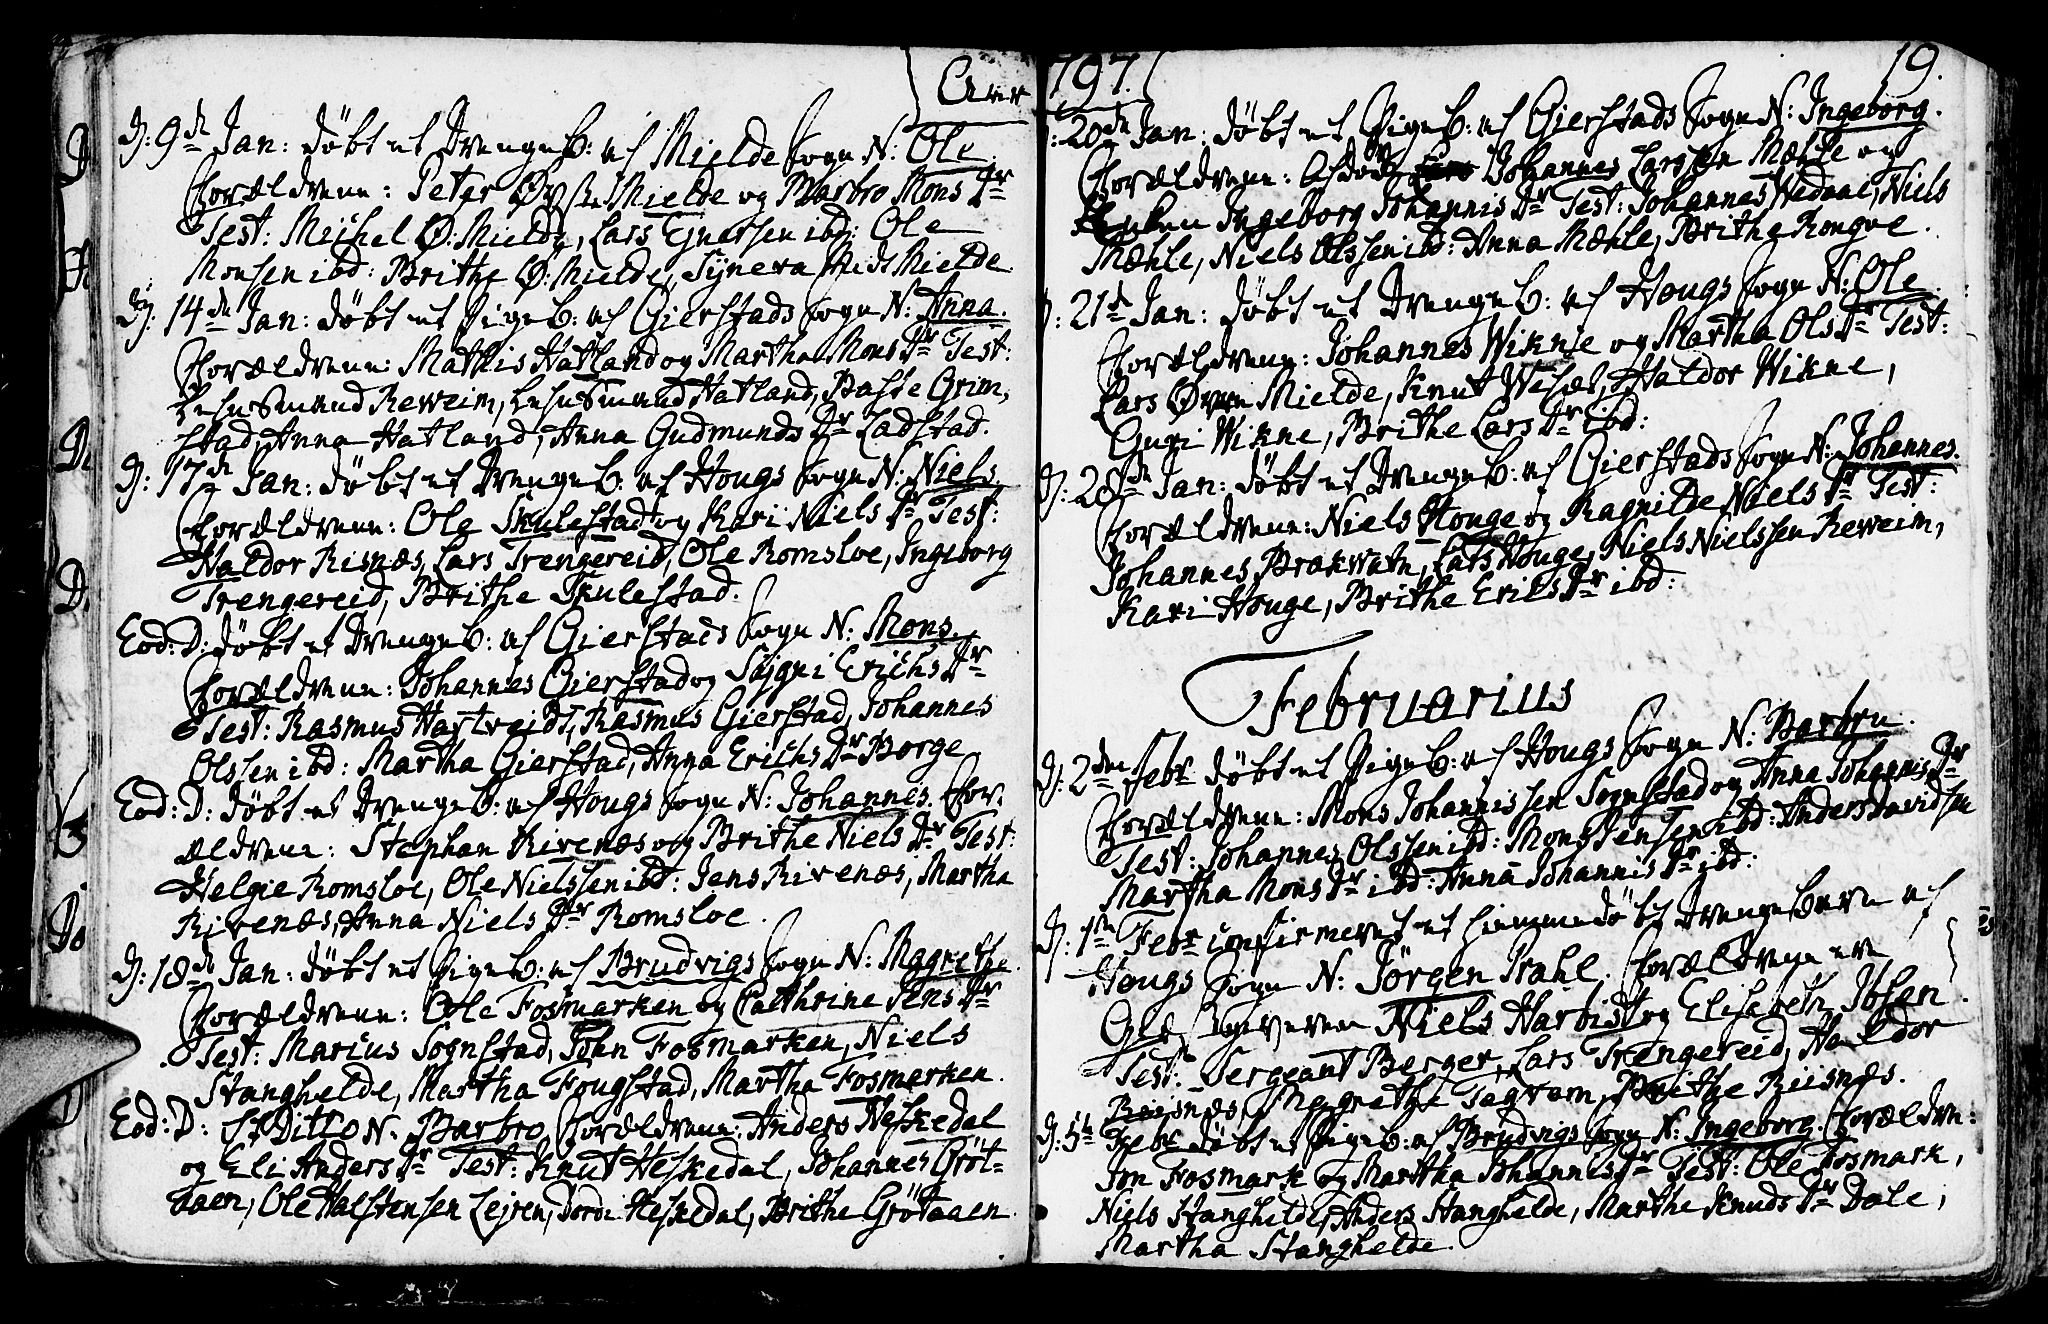 Anno
D: 9de Jan: döbt et DrengeB: af Mielde Sogn N: Ole.
Forældrene: Peter Mielde og Barbro Mons Dr
Test: Michel Ø: Mielde, Lars Iversen ibd: Ole
Monsen ibd: Brithe Ø: Mielde, Syneva Mielde.
D: 14de Jan: döbt et PigeB: af Gierstads Sogn N: Anna.
Forældrene: Mathis Hatland og Martha Mons Dr Test:
Reweim, Hatland, Grim,
stad, Anna Hatland, Anna Gudmunds Dr Ladstad.
D: 17de Jan: döbt et DrengeB: af Hougs Sogn N: Niels.
Forældrene: Ole Skulestad og Kari Niels Dr Test:
Haldor Risnæs, Lars Trengereid, Ole Romsloe, Ingeborg
Trengereid, Brithe Skulestad.
Eod: D: döbt et DrengeB: af Gierstads Sogn N: Mons.
Forældrene: Johannes Gierstad og Sygni Erichs Dr
Test: Rasmus Hartveidt, Rasmus Gierstad, Johannes
Olssen ibd: Martha Gierstad, Anna Erichs Dr Borge
Eod: D: döbt et DrengeB: af Hougs Sogn N: Johannes. For,
ældrene: Stephan Rivenæs og Brithe Niels Dr Test:
Helgie Romsloe, Ole Nielssen ibd: Jens Rivenæs, Martha
Rivenæs, Anna Niels Dr Romsloe.
D: 18de Jan: döbt et PigeB: af Brudvigs Sogn N: Magrethe.
Forældrene: Ole Fosmarken og Cathrine Jens Dr
Test: Marius Sognstad, John Fosmarken, Niels
Stanghelde, Martha Fougstad, Martha Fosmarken.
Eod: D: Ditto N. Barbro Forældrene: Anders Heskedal
og Eli Anders Dr Test: Knut Heskedal, Johannes Gröt-
aaen, Ole Halstensen Lejren, Dordi Heskedal, Brithe Grötaaen.
1797.
19.
D: 20de Jan: döbt et PigeB: af Gierstads Sogn N: Ingeborg.
Forældrene: Johannes Larssen Mæhle og
Enken Ingeborg Johannis Dr Test: Johannes Wedaae, Niels
Mæhle, Niels Olssen ibd: Anna Mæhle, Brithe Rongve.
D: 21de Jan: döbt et DrengeB: af Hougs Sogn N: Ole.
Forældrene: Johannes Wikne og Martha Ols Dr Test:
Lars Øvre Mielde, Knut Haldor Wikne,
Guri Wikne, Brithe Lars Dr ibd:
D: 28de Jan: döbt et DrengeB: af Gierstads Sogn N: Johannes.
Forældrene: Niels Houge og Ragnilde Niels Dr Test:
Johannes Brækvatn, Lars Houge, Niels Nielssen Reweim,
Kari Houge, Brithe Erils Dr ibd:
Februarius
D: 2den Febr döbt et PigeB: af Hougs Sogn N: Barbru.
Forældrene: Mons Johannissen Sognstad og Anna Johannis Dr
Test: Johannes Olssen ibd: Mons Jensen ibd: Anders Davidsen
Martha Mons Dr ibd: Anna Johannis Dr ibd:
D: Febr confirmeret et hiemmedöbt DrengeBarn af
Hougs Sogn N: Jörgen Krahl. Forældrene ere
Niels Harbist og Elisabeth Johan.
Test: Sergeant Berger, Lars Trengereid, Haldor
Reisnæs, Magrethe Brithe Reisnæs.
D: 5te Febr döbt et PigeB: af Brudvigs Sogn N: Ingeborg. Forældre:
Jon Fosmark og Martha Johannis Dr Test: Ole Fosmark,
Niels Stanghelde, Anders Stanghelde, Marthe Knuds Dr Dale,
Martha Stanghelde.